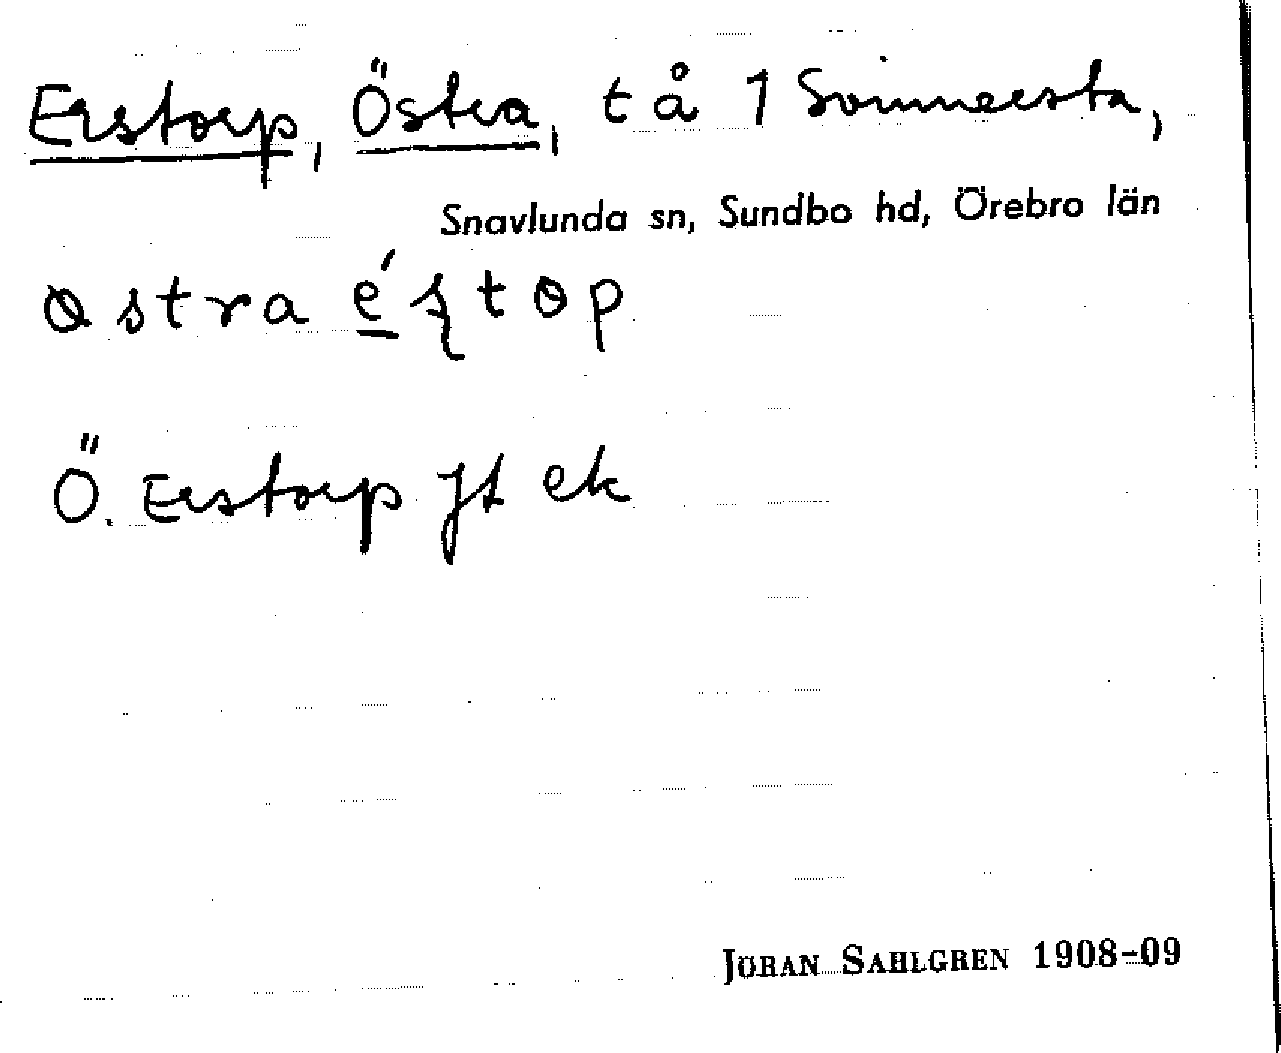 Erstorp, Östra, tå 1 Svinnersta,
Snavlunda sn, Sundbo hd, Örebro län
østra é̱ʂtøp
Ö. Erstorp Jt ek
JÖRAN SAHLGREN 1908-09